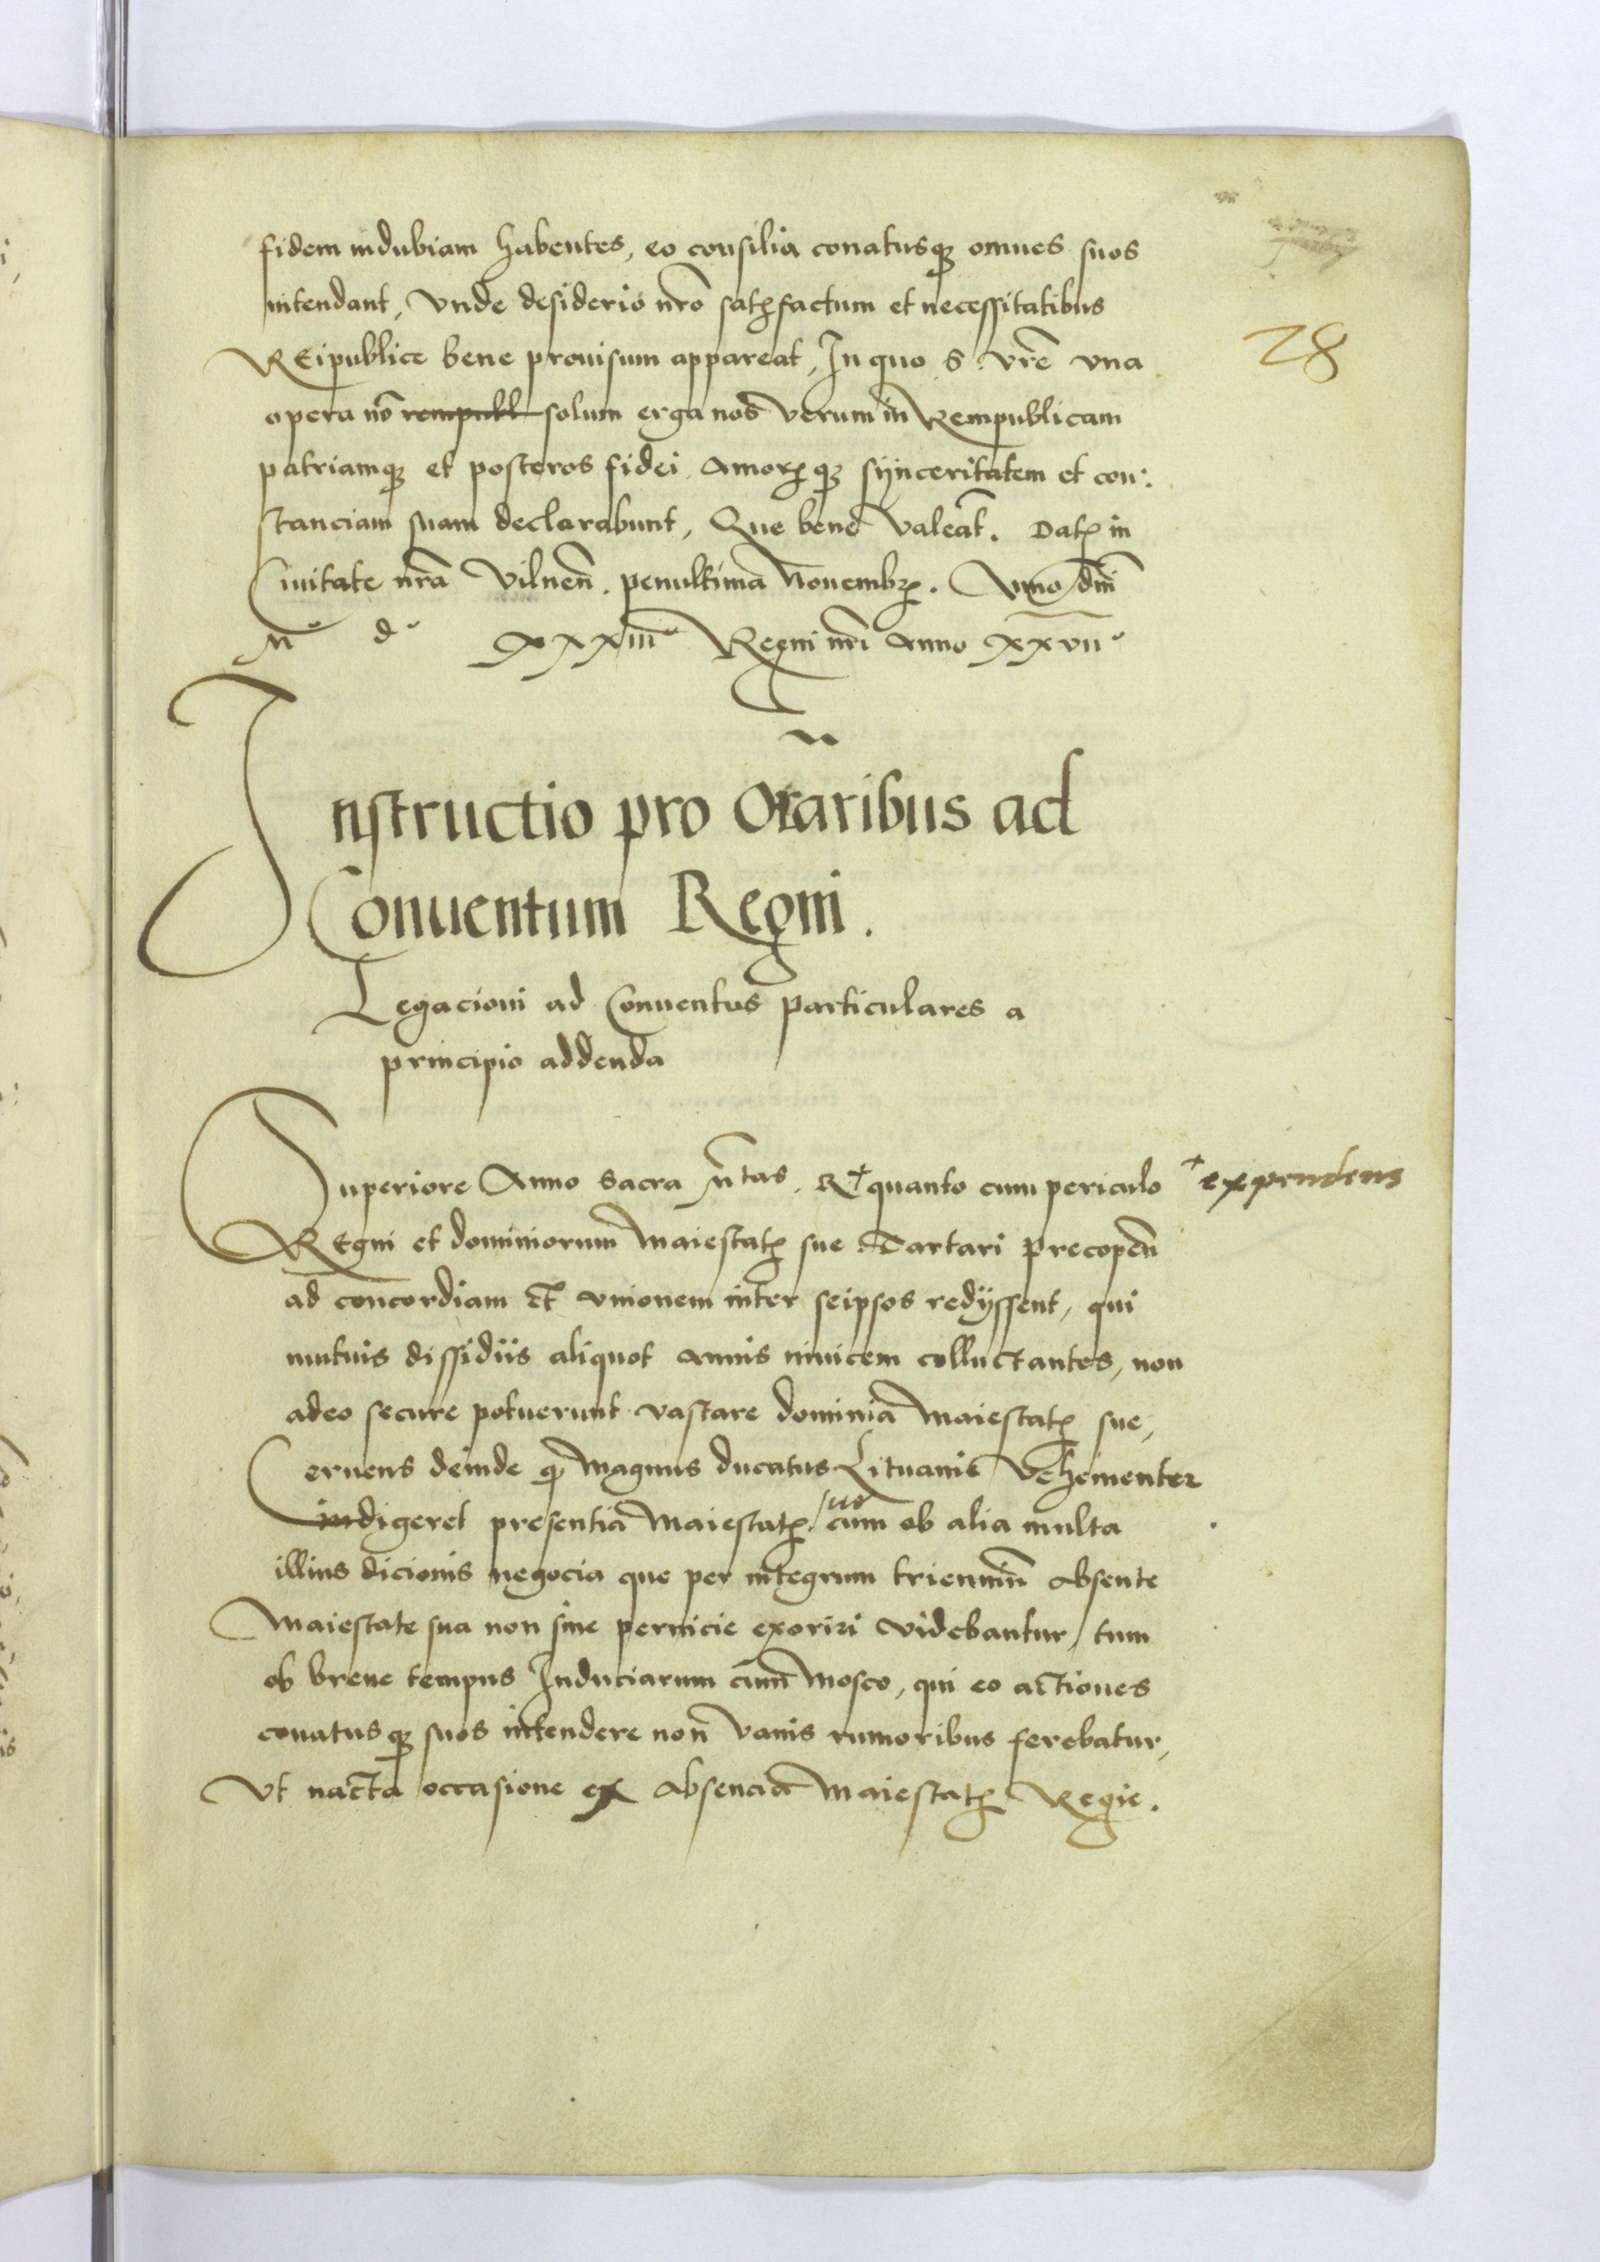 fidem indubiam habentes, eo consilia conatusq; omnes suos
intendant, Vnde desiderio nro satisfactum et necessitatibus
REipublice bene prouisum appareat, In quo S. Vre vna
opera no rempubl solum erga nos verum in Rempublicam
28
patriamq; et posteros fidei amorisq; synceritatem et con:
stanciam suam declarabunt, Que bene valeat. Datis in
Ciuitate nra Vilnen. penultima Nouembris. Anno dni
M° d° xxxiii° Regni nri anno xxvii°
Instructio pro Oraribus ad
Conuentum Regni.
Legacioni ad Conuentus particulares a
principio addenda
Superiore Anno Sacra Mtas. R+ quanto cum periculo
+ expendens
REgni et dominiorum Maiestatis sue Tartari precopen
ad concordiam et vnionem inter seipsos redijssent, qui
mutuis dissidiis aliquot annis inuicem colluctantes, non
adeo secure potuerunt vastare dominia Maiestatis sue,
Cernens deinde q Magnus ducatus Lituanie vehementer
indigeret presentia Maiestatis sue cum ob alia multa
illius dicionis negocia que per integrum trienniu absente
Maiestate sua non sine pernicie exoriri videbantur, tum
ob breue tempus Induciarum cum Mosco, qui eo actiones
conatusq; suos intendere non vanis rumoribus ferebatur,
Vt nacta occasione ex absencia Maiestatis Regie.